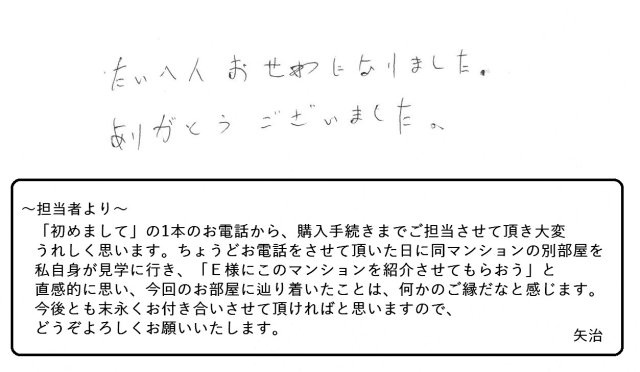 たいへん おせわになりました。
ありがとうございました。
～担当者より～
「初めまして」の1本のお電話から、購入手続きまでご担当させて頂き大変
うれしく思います。ちょうどお電話をさせて頂いた日に同マンションの別部屋を
私自身が見学に行き、「Ｅ様にこのマンションを紹介させてもらおう」と
直感的に思い、今回のお部屋に辿り着いたことは、何かのご縁だなと感じます。
今後とも末永くお付き合いさせて頂ければと思いますので、
どうぞよろしくお願いいたします。
矢治